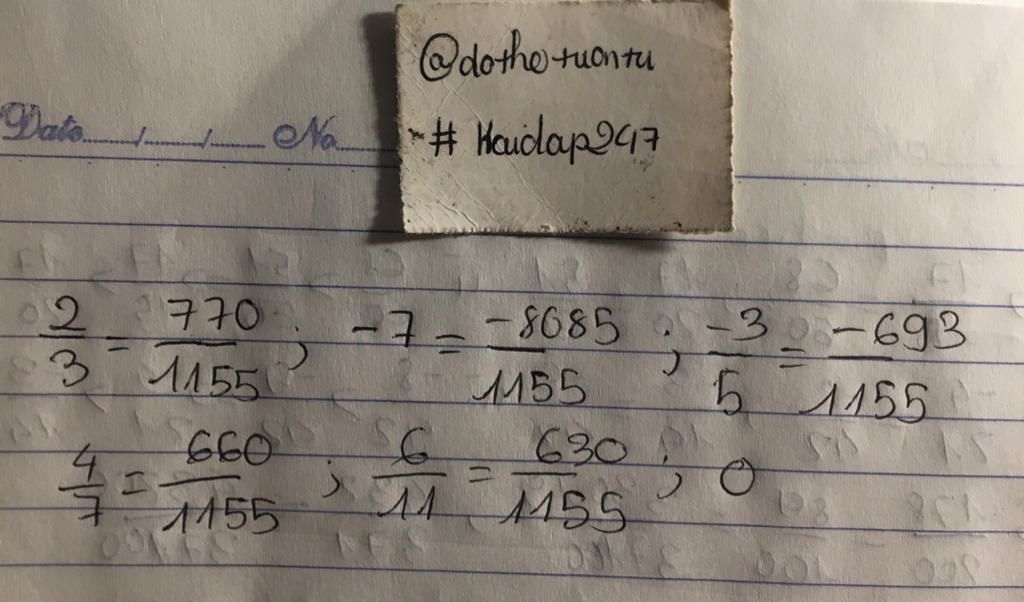 @dothetuantu
# Haidap247
Date....../....../...... No......
2/3 = 770/1155 ; -7 = -8085/1155 ; -3/5 = -693/1155
4/7 = 660/1155 ; 6/11 = 630/1155 ; 0